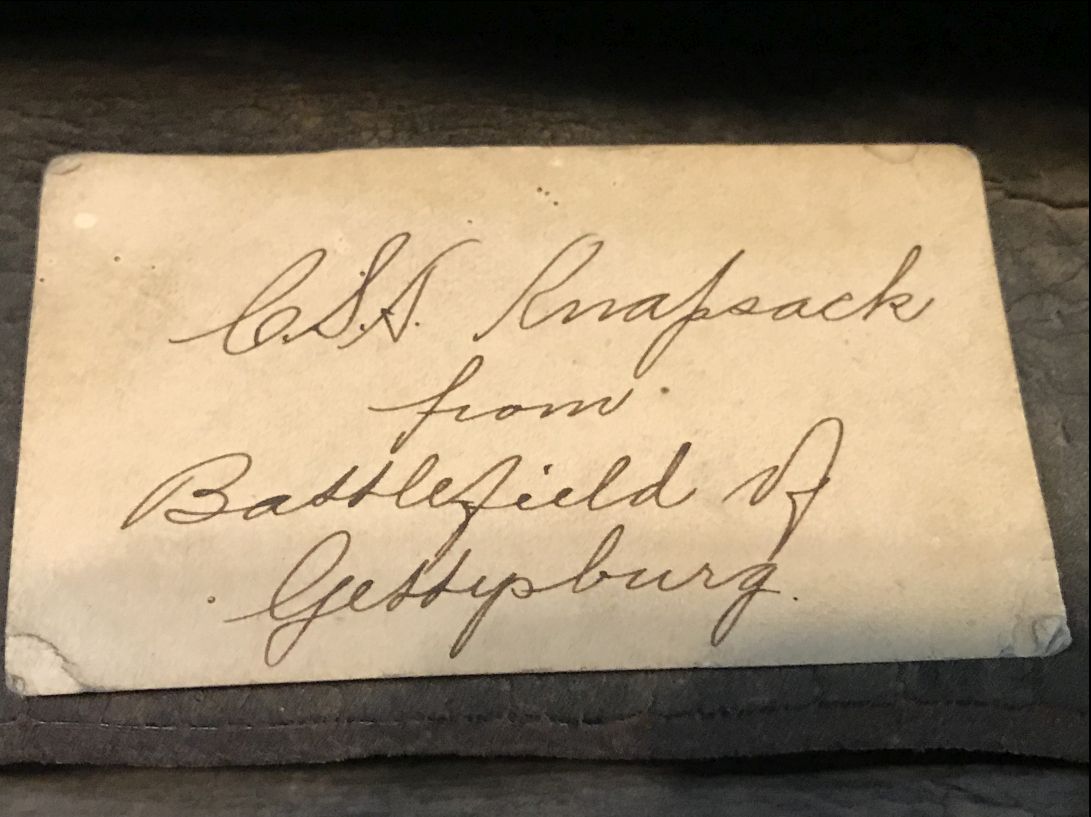 C.S.A. Knapsack
from
Battlefield of
Gettysburg.